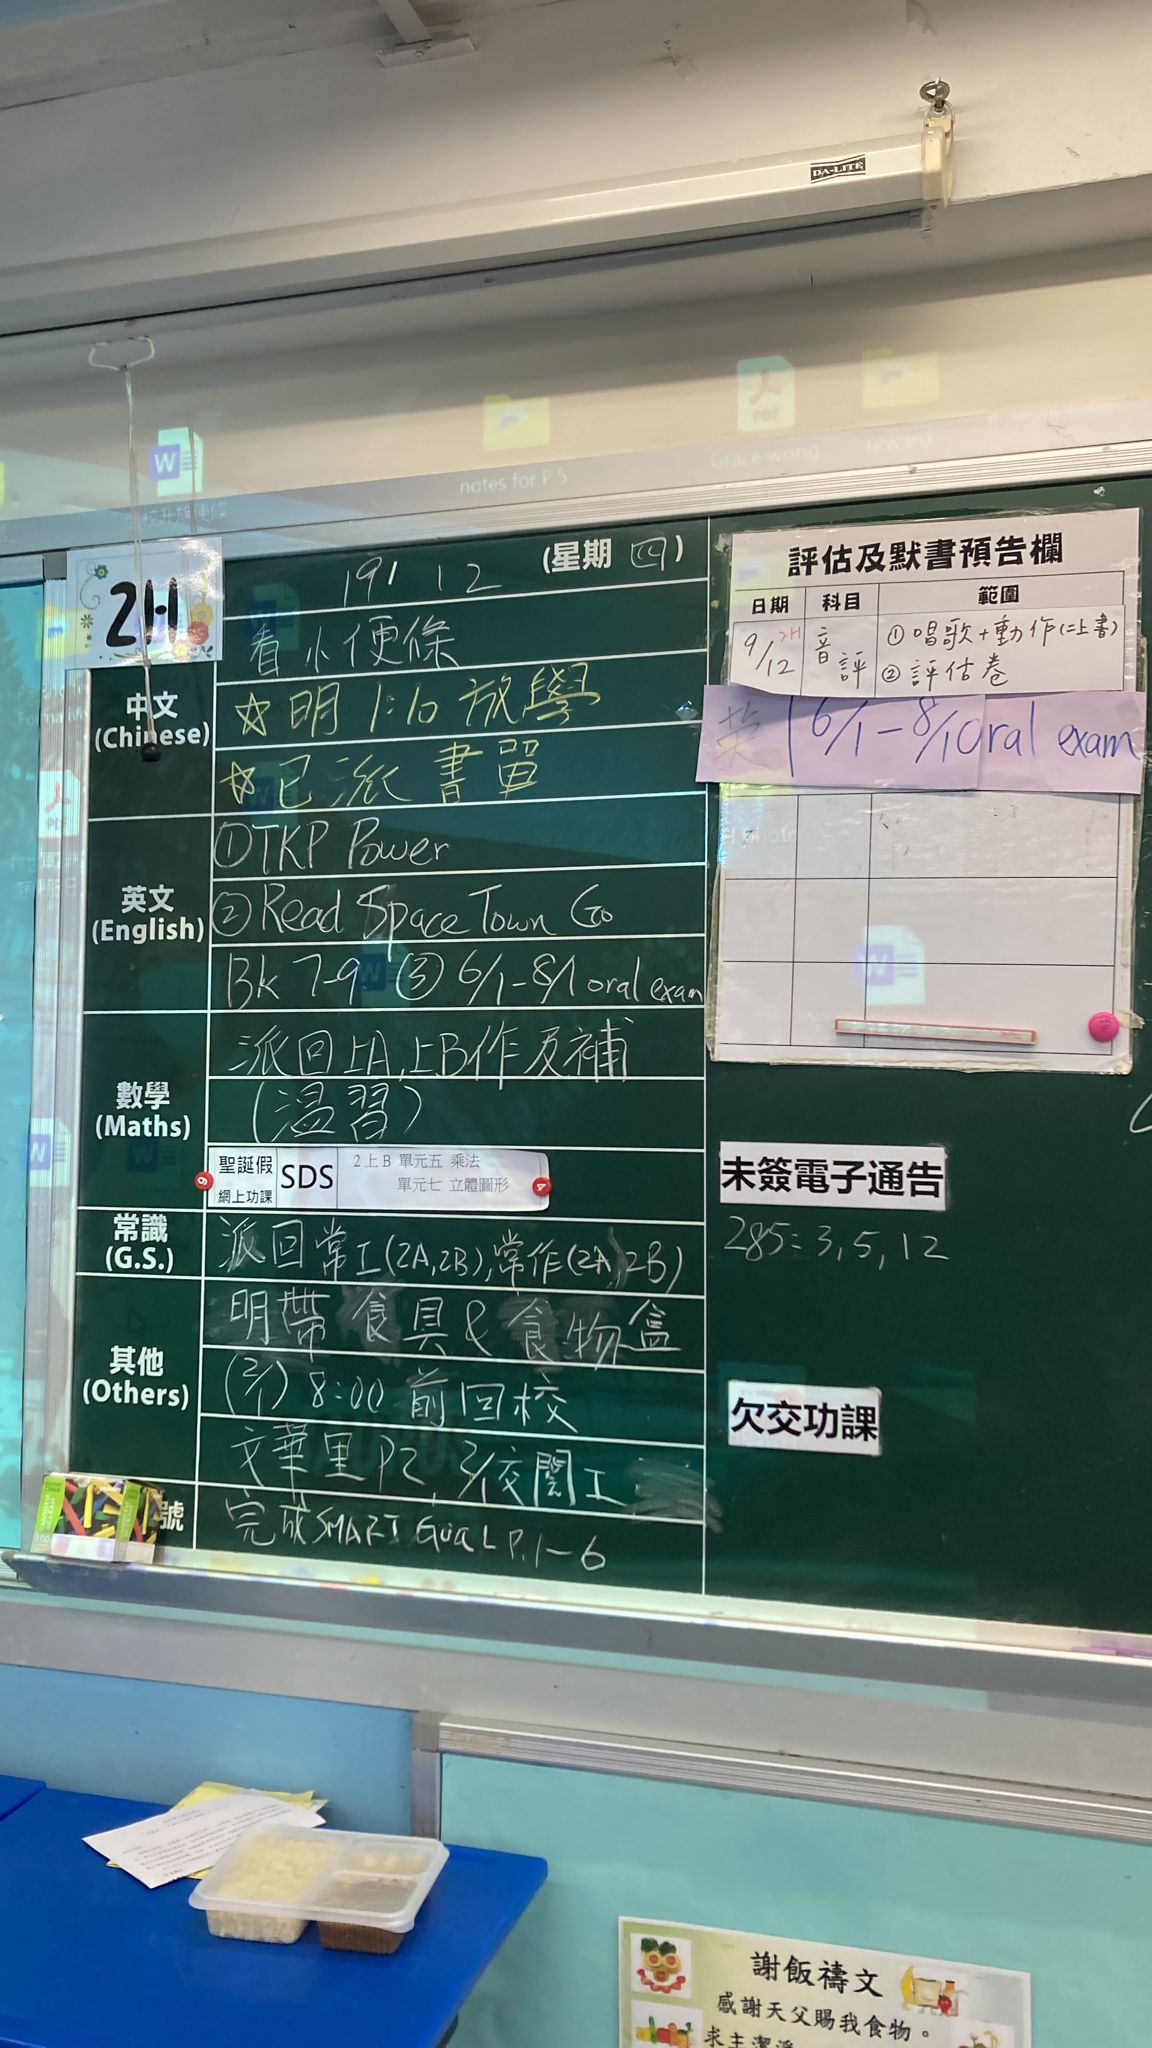 DA-LITE
PDF
W
notes for P.5
Grace wong
reward
2H
19/ 12 (星期 四)
看小便條
中文
(Chinese)
☆明 1:10 放學
☆已派書單
英文
(English)
①TKP Power
②Read Space Town Go
Bk 7-9 ③ 6/1-8/1 oral exam
數學
(Maths)
派回上A,上B作及補
(溫習)
聖誕假
網上功課
SDS
2上B 單元五 乘法
單元七 立體圖形
常識
(G.S.)
派回常工(2A,2B),常作(2A,2B)
其他
(Others)
明帶食具 & 食物盒
(2/1) 8:00 前回校
文華里P2, 2/1交閱工
號
完成SMART Goal P.1-6
評估及默書預告欄
日期 科目 範圍
9/12 2H 音評 ①唱歌+動作(二上書)
②評估卷
英 6/1-8/1 oral exam
未簽電子通告
285: 3, 5, 12
欠交功課
謝飯禱文
感謝天父賜我食物。
求主潔